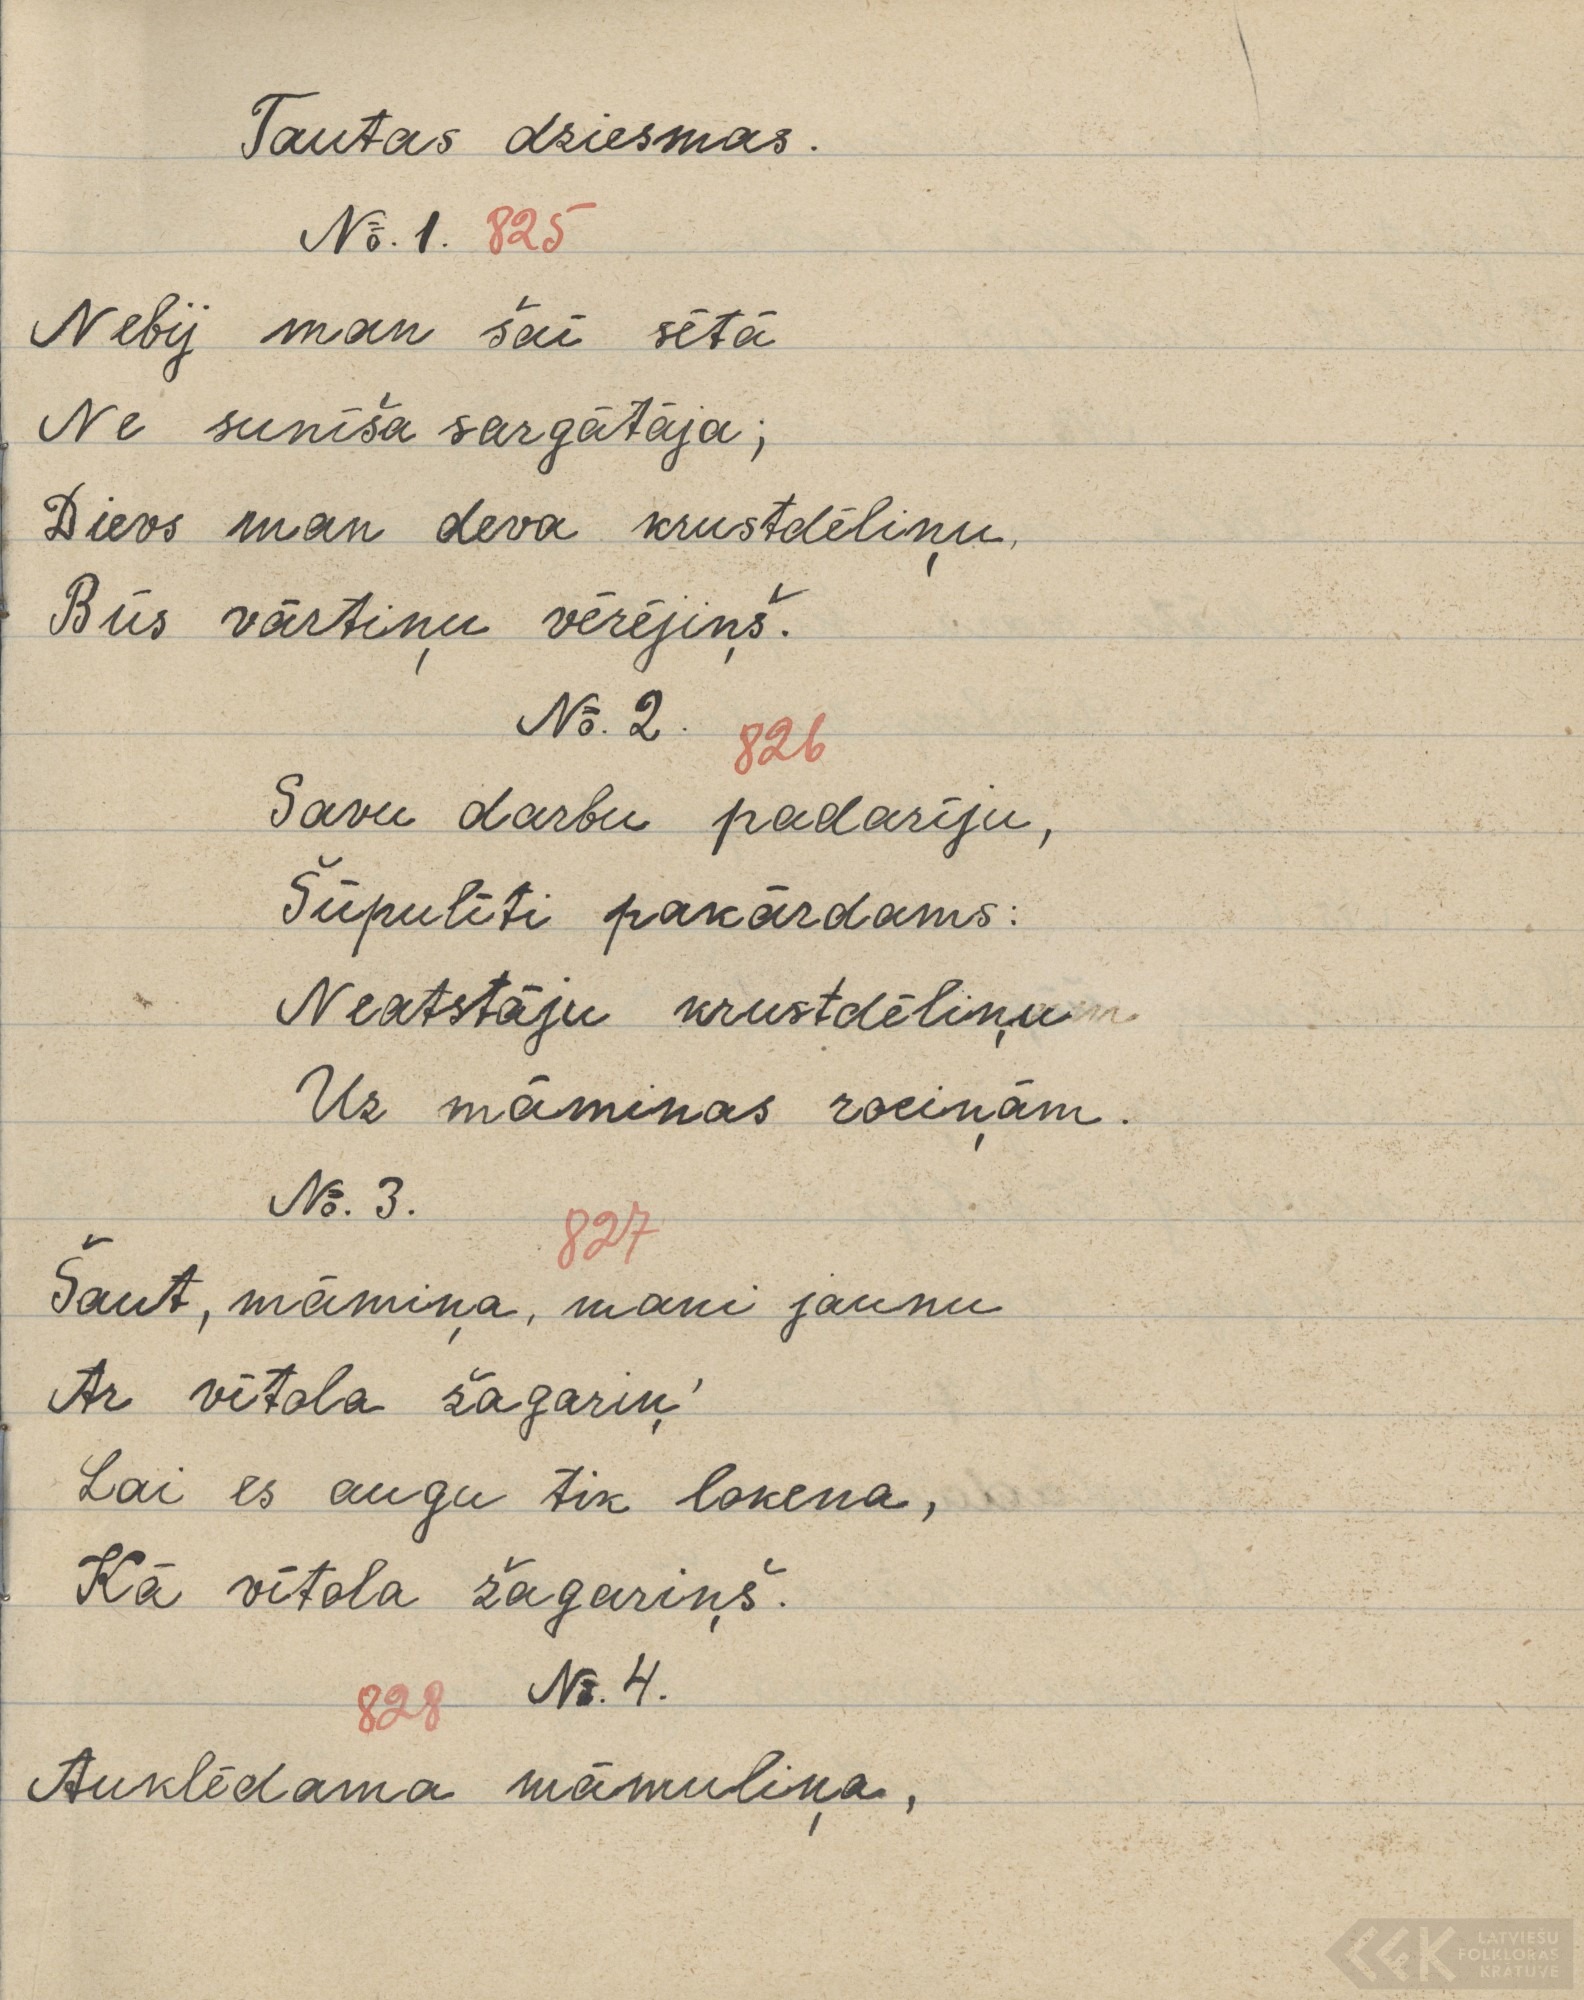 Tautas dziesmas.
No. 1. 825
Nebij man šai sētā
Ne sunīša sargātāja;
Dievs man deva krustdēliņu,
Būs vārtiņu vērējiņš.
No. 2. 826
Savu darbu padarīju,
Šūpulīti pakārdams:
Neatstāju krustdēliņu
Uz māmiņas rociņām.
No. 3. 827
Šaut, māmiņa, mani jaunu
Ar vītola žagariņ'
Lai es augu tik lokena,
Kā vītola žagariņš.
828 No. 4.
Auklēdama māmuliņa,
LATVIEŠU
FOLKLORAS
KRĀTUVE